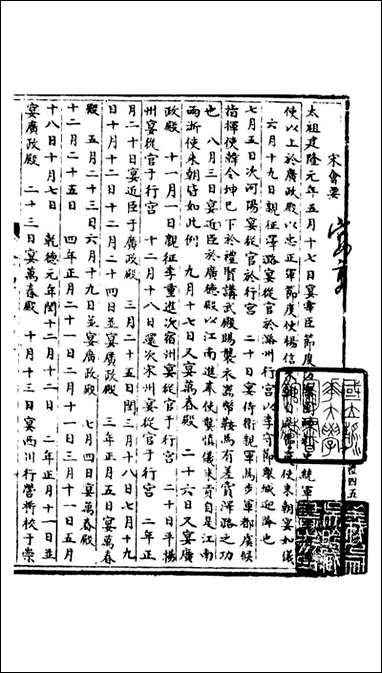 宋會要
宴享
太祖建隆元年五月十七日宴宰臣節度
使以上於廣政殿以忠正軍節度使楊信來朝宴如儀
六月十九日親征澤潞宴從官於潞州行宮以李守節製城迎降也
七月五日次河陽宴從官於行宮 二十日宴侍衛軍馬步軍都虞候
指揮使韓令坤已下於禮賢講武殿賜襲衣器幣鞍馬有差賞澤潞之功
也 八月三日宴近臣於廣德殿以江南進奉使龔慎儀來貢自是江南
兩浙使來朝皆如此例 九月十七日又宴萬春殿 二十六日又宴廣
政殿 十一月一日親征李重進次宿州宴從官于行宮 二十日平揚
州宴從官于行宮 十二月十八日還次宋州宴從官于行宮 二年正
月二十日宴近臣于廣政殿 三月二十五日閏三月十八日七月十九
日十月十二日十二月二十四日並宴廣政殿 三年正月五日宴萬春
殿 五月二十三日六月十九日並宴廣政殿 七月四日宴萬春殿
十二月二十五日 四年正月二十一日二月十一日三月十一日五月
十八日十月七日 乾德元年閏十二月十二日 二年正月十一日並
宴廣政殿 二十三日宴萬春殿 十月十三日宴西川行營將校于崇